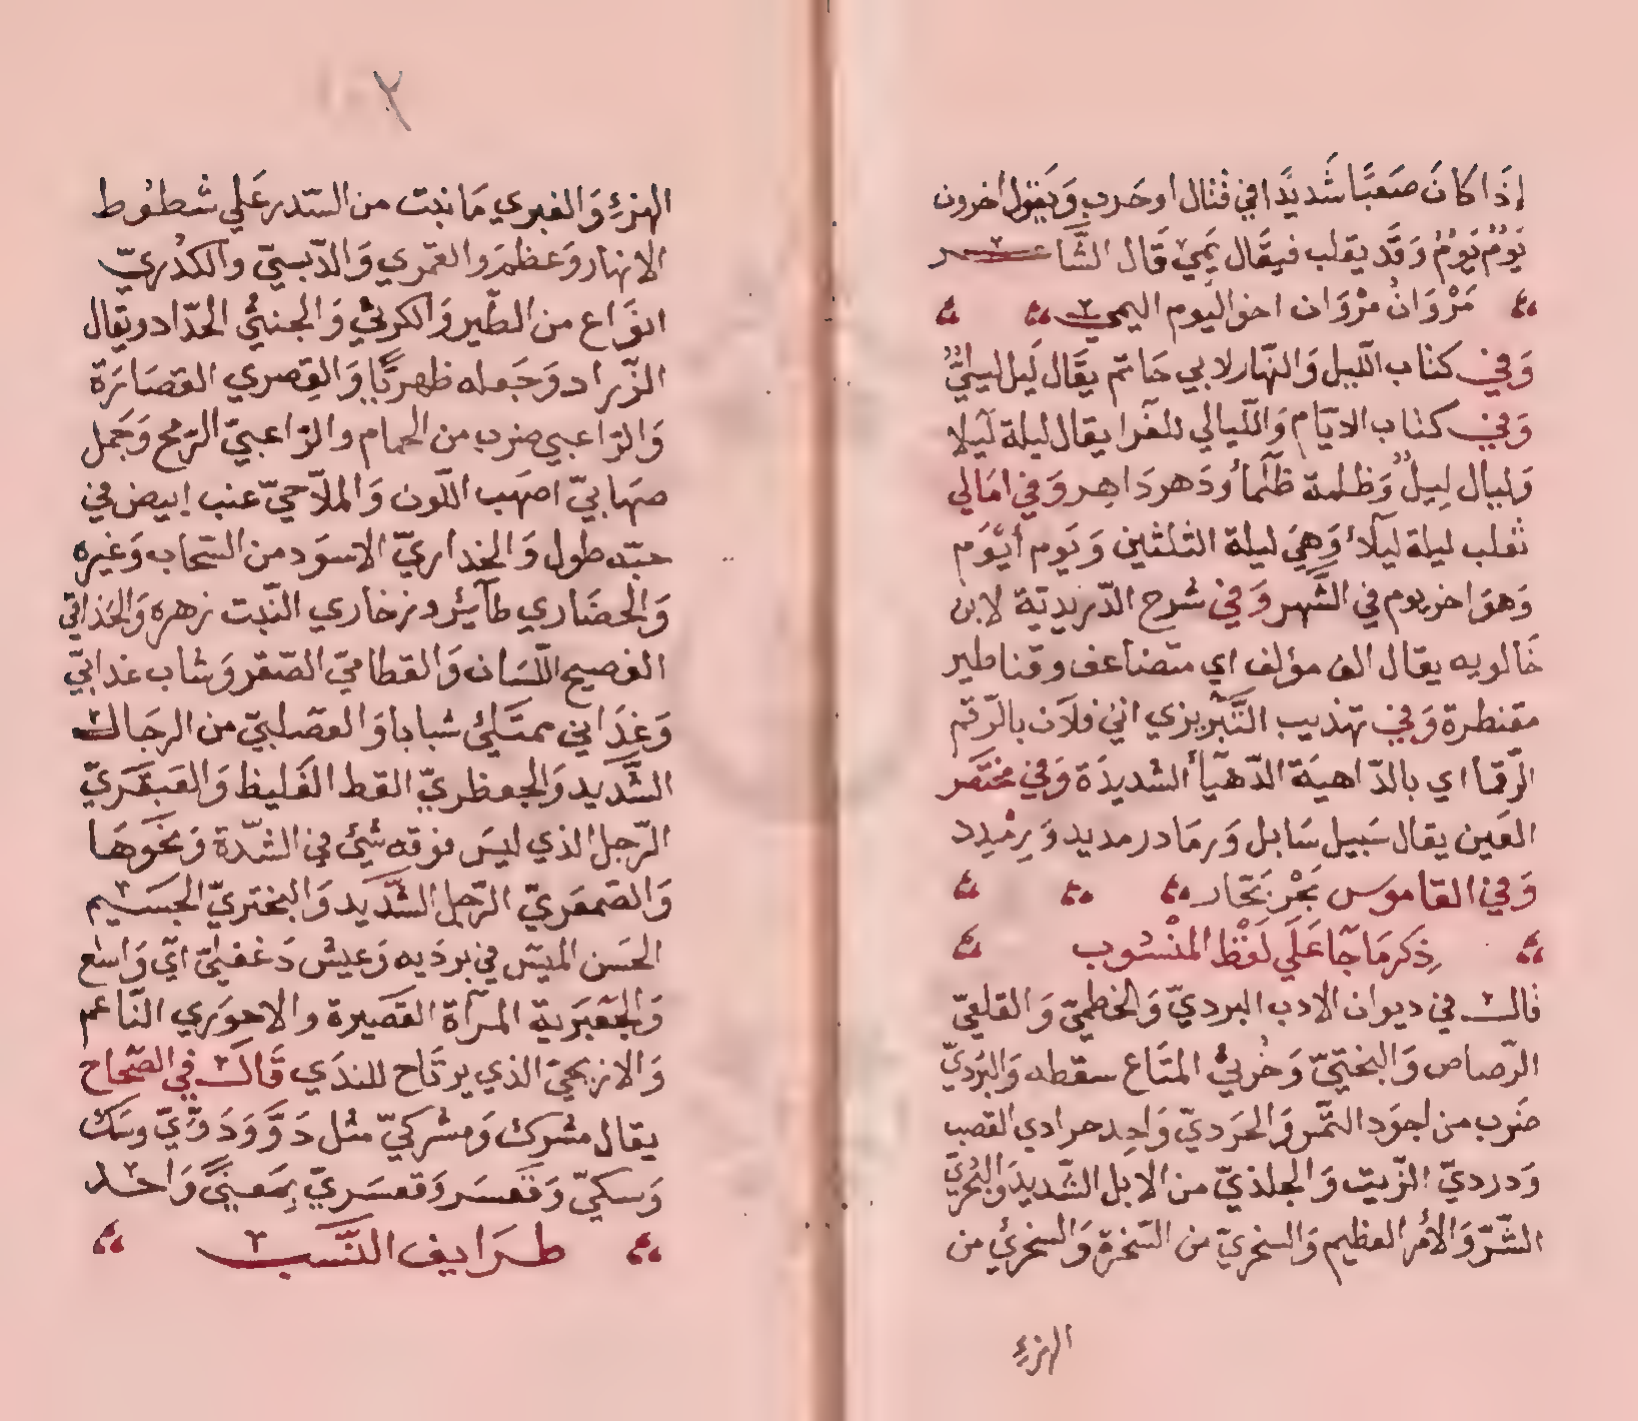 إذَا كَانَ صَعبًا شَديدًا في قتال او حَرب وَيَقول اخرون
يَومٌ يَوِمٌ وَقَد يقلب فيقَال يَمِيٌ قَال الشَّاعر
مَرْوَانُ مَرْوَان اخو اليوم اليمي
وَفي كتاب الليل وَالنّهار لابي حَاتم يقَال لَيل ليليٌّ
وَفي كتاب الايّام وَاللّيالي للفَرا يقال ليلة لَيلا
وَليال لِيلٌ وَظلمة ظَلمأ ودَهر دَاهِر وَفي امَالي
ثعلب ليلة لَيلأ وَهِيَ ليلة الثلثين وَيَوم أيْوَم
وَهوَ اخر يوم في الشّهر وَفي شرح الدّريديّة لابن
خَالويه يقال الف مؤلف اي متضاعف وقناطير
مقنطرة وَفي تهذيب التّبْريزي اني فلاَن بالرّقم
الرّقما اي بالدّاهيَة الدّهيَأ الشديدَة وَفي مختَصَر
العَين يقال سَبيل سَابل وَرمَادر مديد وَرِمْدِد
وَفي القاموس بَحْر بَحّار
ذِكر مَا جَآ عَلَي لَفْظ المنْسُوب
قالـ في ديوان الادب البرديّ وَالخطميّ وَالقلعيّ
الرّصاص وَالبختيّ وَخُرثيُّ المتَاع سقطه وَالبَرديّ
ضَرب من اجوَد التّمر وَالحَرديّ وَاحِد حرادي القصب
وَدرديّ الزّيت وَالجلذيّ من الابل الشّديد وَالبُحْريّ
الشّرّ وَالأمْر العظيم وَالسخريّ من السّخرة وَالسخريُّ من
الهزءِ
٢
الهزءِ وَالعبري مَا نبت من السّدر عَلي شطوط
الانهار وَعظمَ والقمري وَالدّبسيّ والكدْريّ
انوَاع من الطّير وَالكرثيُّ وَالجنثيُّ الحدّاد ويقال
الزّراد وَجَعله ظهريًّا وَالقِصري القصَارَة
وَالرّاعبي ضرب من الحمام والزّاعبيّ الرّمح وَجَمل
صهَابيّ اصهَب اللّون وَالملاّحيّ عنب ابيض في
حبّه طول وَالخداريّ الاسوَد من السّحاب وَغيره
وَالخضَاري طآئر وزخاري النّبت زهره وَالحَذاقي
الفصيح اللّسَان وَالقطاميّ الصّقر وَشاب غدانيّ
وَغذَاني ممتَلئ شبابا وَالعصلبيّ من الرجَالـ
الشَّديد وَالجعظريّ الفظ الغَليظ وَالعَبقَريّ
الرّجل الذي ليسَ فوقه شَيْئ في الشدّة وَنَحوَهَا
وَالصّمعَريّ الرّجل الشّديد وَالبختريّ الجسَيم
الحَسن الميس في بردَيه وَعيش دَغفليّ ايّ وَاسع
وَالجَعْبَرية المرأة القَصيرة والاحوَري النّاعم
وَالاريحيّ الذي يرتَاح للندَي قَالـ في الصّحاح
يقال مشرك وَمشركيّ مثل دَوّ وَدَوّيّ وسَك
وَسكيّ وَقعسَر وَقعسَريّ بِمَعنيً وَاحد
طرَايف النَّسَب